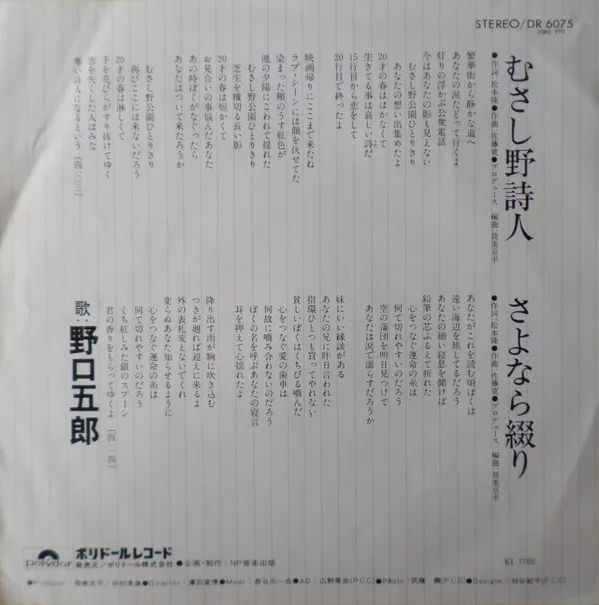 STEREO/DR 6075
むさし野詩人
●作詞：松本隆●作曲：佐藤寛●プロデュース　編曲：筒美京平
繁華街から静かな道へ
あなたの涙たどって行くよ
灯りの浮かぶ公衆電話
今はあなたの影も見えない
むさし野公園ひとりきり
あなたの想い出集めたよ
20才の春ははかなくて
生きてる事は哀しい詩だ
15行目から恋をして
20行目で終ったよ
映画帰りにここまで来たね
ラブ・シーンには顔を伏せてた
染まった頰のうす紅色が
池の夕陽にこわれて揺れた
むさし野公園ひとりきり
芝生を横切る長い影
20才の春は短かくて
お見合いの事悩んだあなた
あの時ぼくがなぐったら
あなたはついて来たろうか
むさし野公園ひとりきり
再びここには来ないだろう
20才の春は淋しくて
手を花びらがすり抜けてゆく
恋を失くした人はみな
寒い詩人になるという［四：〇三］
さよなら綴り
●作詞：松本隆●作曲：佐藤寛●プロデュース　編曲：筒美京平
あなたがこれを読む頃ぼくは
遠い海辺を旅してるだろう
あなたの細い寝息を聞けば
鉛筆の芯ふるえて折れた
心をつなぐ運命の糸は
何て切れやすいのだろう
空の蒲団を明日見つけて
あなたは涙で濡らすだろうか
妹にいい縁談がある
あなたの兄に昨日言われた
指環ひとつも買ってやれない
貧しいぼくはくちびる嚙んだ
心をつなぐ愛の歯車は
何故に嚙み合わないのだろう
ぼくの名を呼ぶあなたの寝言
耳を押えて心揺れたよ
降り出す雨が胸に吹き込む
つきが廻れば迎えに来るよ
外の表札変えないでくれ
変らぬあなた知らせるように
心をつなぐ運命の糸は
何て切れやすいのだろう
くち紅しみた銀のスプーン
君の香りをもらってゆくよ
［四：二四］
歌：野口五郎
polydor
ポリドールレコード
発売元／ポリドール株式会社
●企画・制作：NP音楽出版
KI 7702